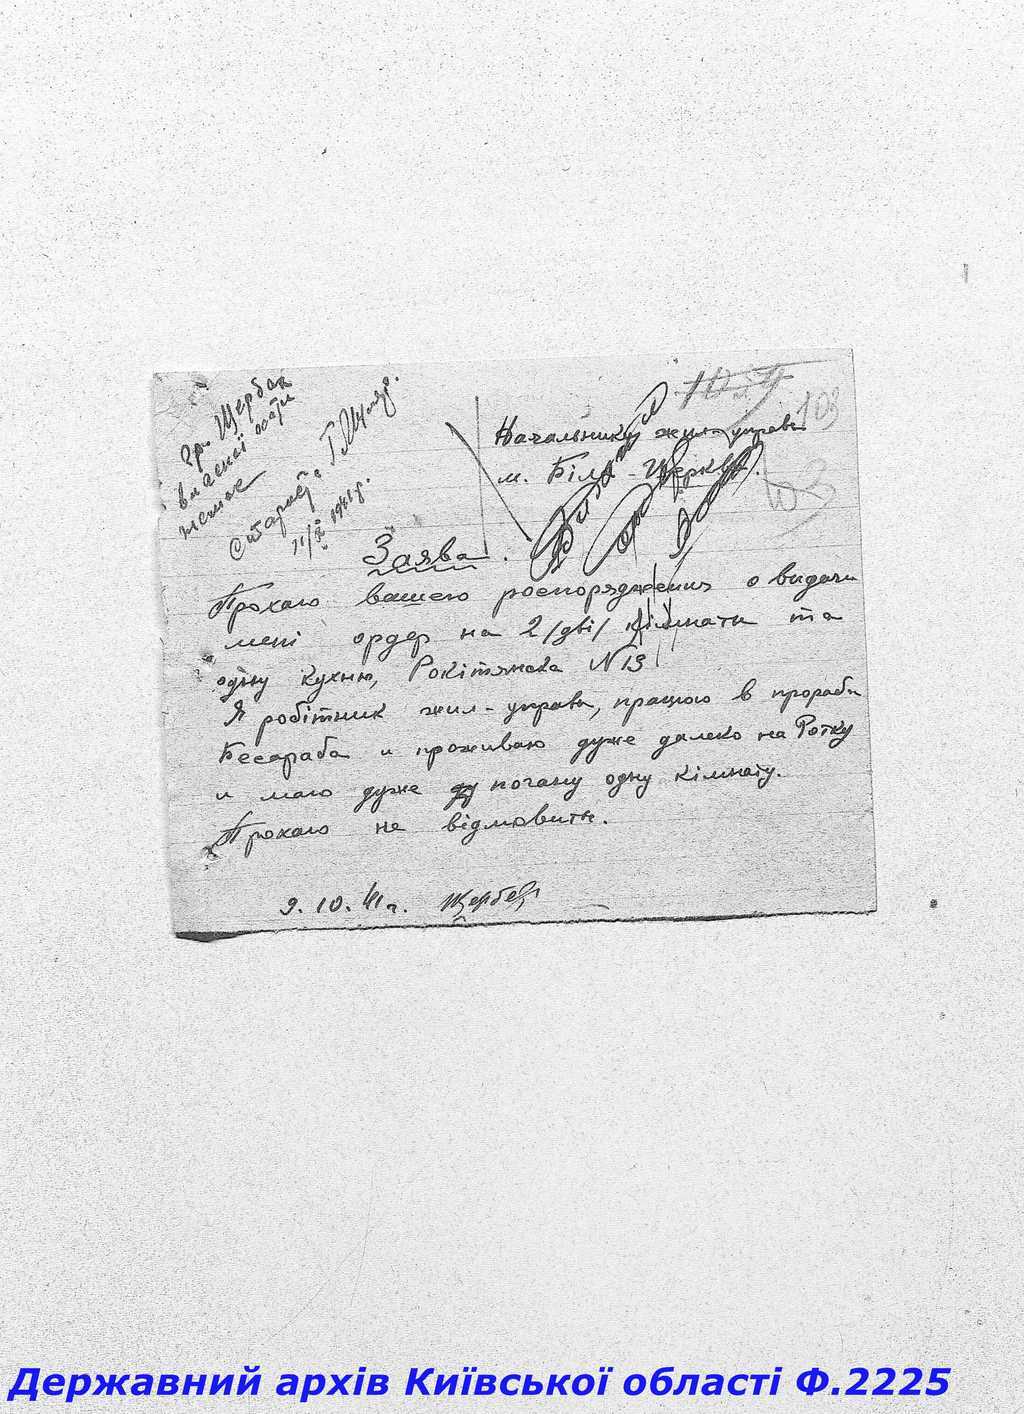 гр. Щербак
власної
мешкає
Староста
11/X 1941 р.
103
Начальнику жил-управи
м. Біла-Церква.
Заява.
Прохаю вашего роспорядження о видачи
мені ордер на 2/дві/ кімнати та
одну кухню, Рокітянска N 13
Я робітник жил-управи, працюю в прораби
Бесараба и проживаю дуже далеко на Ротку
и маю дуже погану одну кімнату.
Прохаю не відмовить.
9.10.41 г. Щербак
Державний архів Київської області Ф.2225